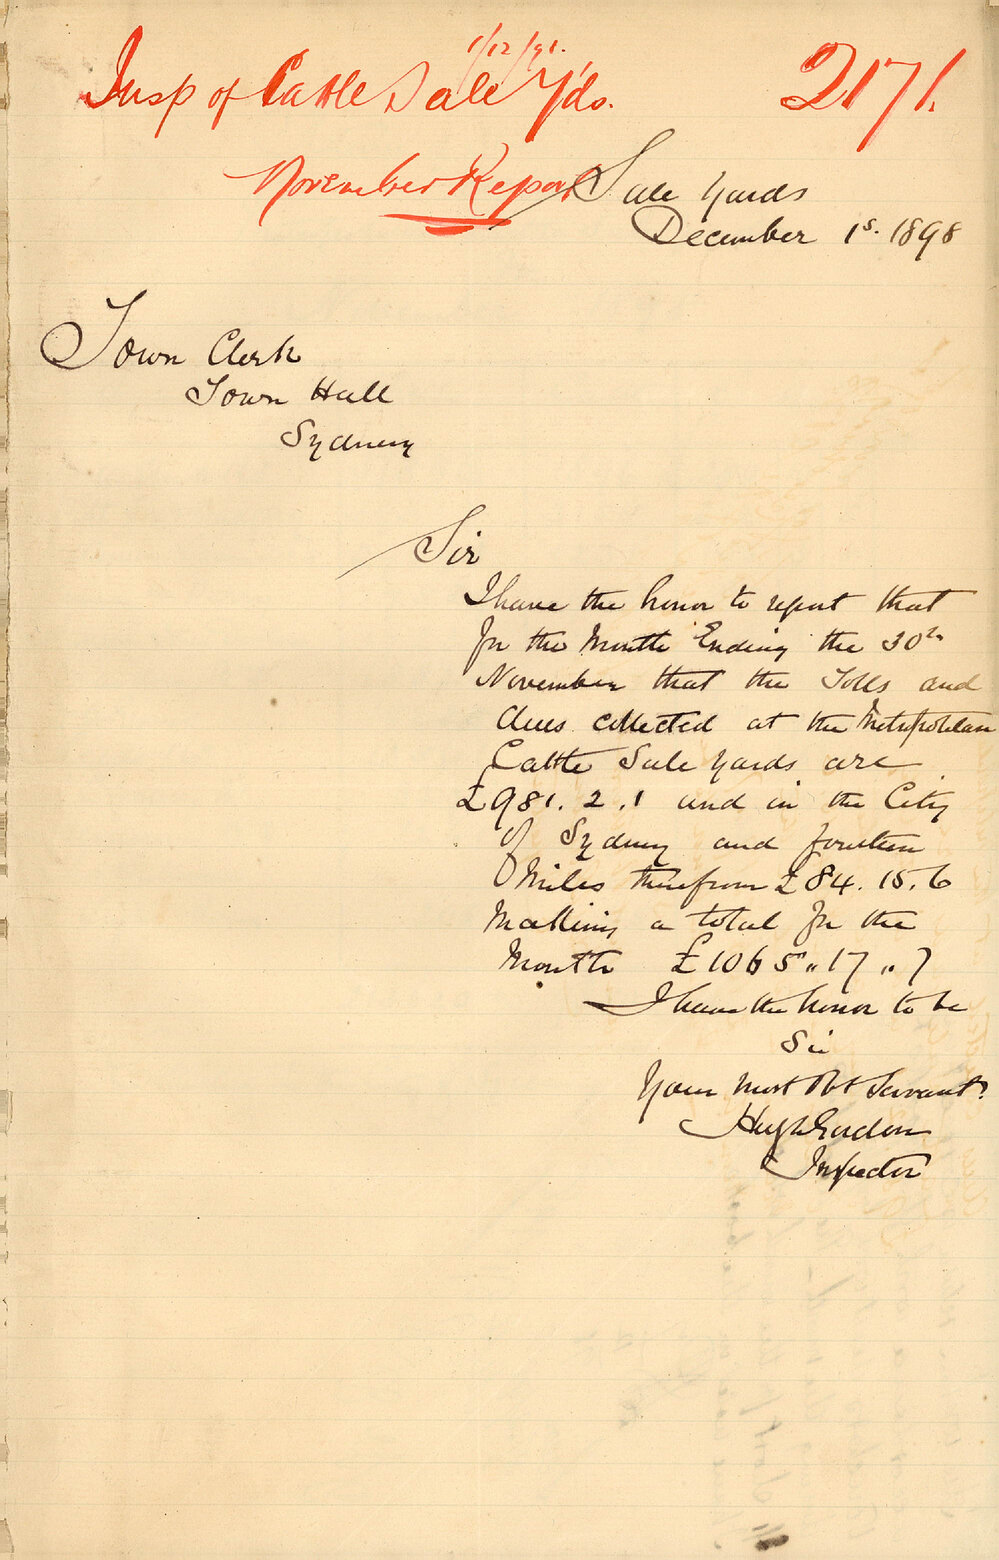 1/12/91.
Insp of Cattle Sale Yds. 2171.
November Report
Sale Yards
December 1s. 1898
Town Clerk
Town Hall
Sydney
Sir
I have the honor to report that
for the Month Ending the 30th
November that the Tolls and
dues collected at the Metropolitan
Cattle Sale Yards are
£981.2.1 and in the City
of Sydney and fourteen
Miles therefrom £84.15.6
Making a total for the
Month £1065"17"7
I have the honor to be
Sir
Your most Obt Servant
Hugh Gordon
Inspector